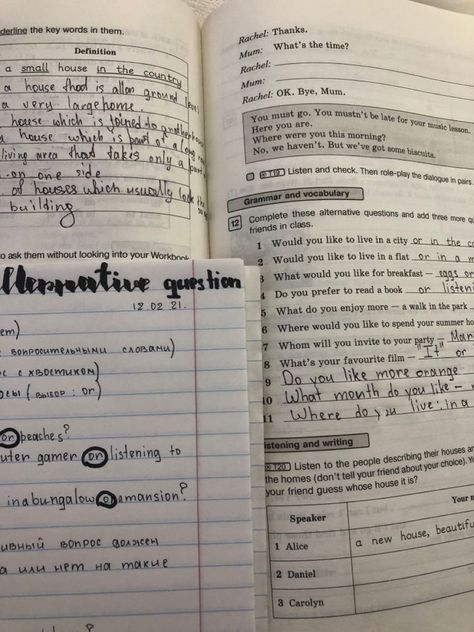 derline the key words in them.
Definition
a small house in the country
a house that is all on ground level
a very large home
house which is joined to another house
a house which is part of a long row
living area that takes only a part
on one side
of houses which usually look the
building
to ask them without looking into your Workbook
Alternative question
12.02.21.
вопросительными словами)
с хвостиком)
(выбор: or)
or peaches?
uter gamer or listening to
in a bungalow or a mansion?
ивный вопрос должен
а или нет на такие
Rachel: Thanks.
Mum: What's the time?
Rachel:
Mum:
Rachel: OK. Bye, Mum.
You must go. You mustn't be late for your music lesson.
Here you are.
Where were you this morning?
No, we haven't. But we've got some biscuits.
Listen and check. Then role-play the dialogue in pairs
Grammar and vocabulary
12 Complete these alternative questions and add three more qu
friends in class.
1 Would you like to live in a city or in the co
2 Would you like to live in a flat or in a m
3 What would you like for breakfast – eggs o
4 Do you prefer to read a book or listeni
5 What do you enjoy more – a walk in the park
6 Where would you like to spend your summer ho
7 Whom will you invite to your party – Mar
8 What's your favourite film – "It" or
9 Do you like more orange
10 What month do you like –
11 Where do you live: in a
istening and writing
120 Listen to the people describing their houses an
the homes (don't tell your friend about your choice). Yo
your friend guess whose house it is?
Speaker
Your n
1 Alice
a new house, beautifu
2 Daniel
3 Carolyn